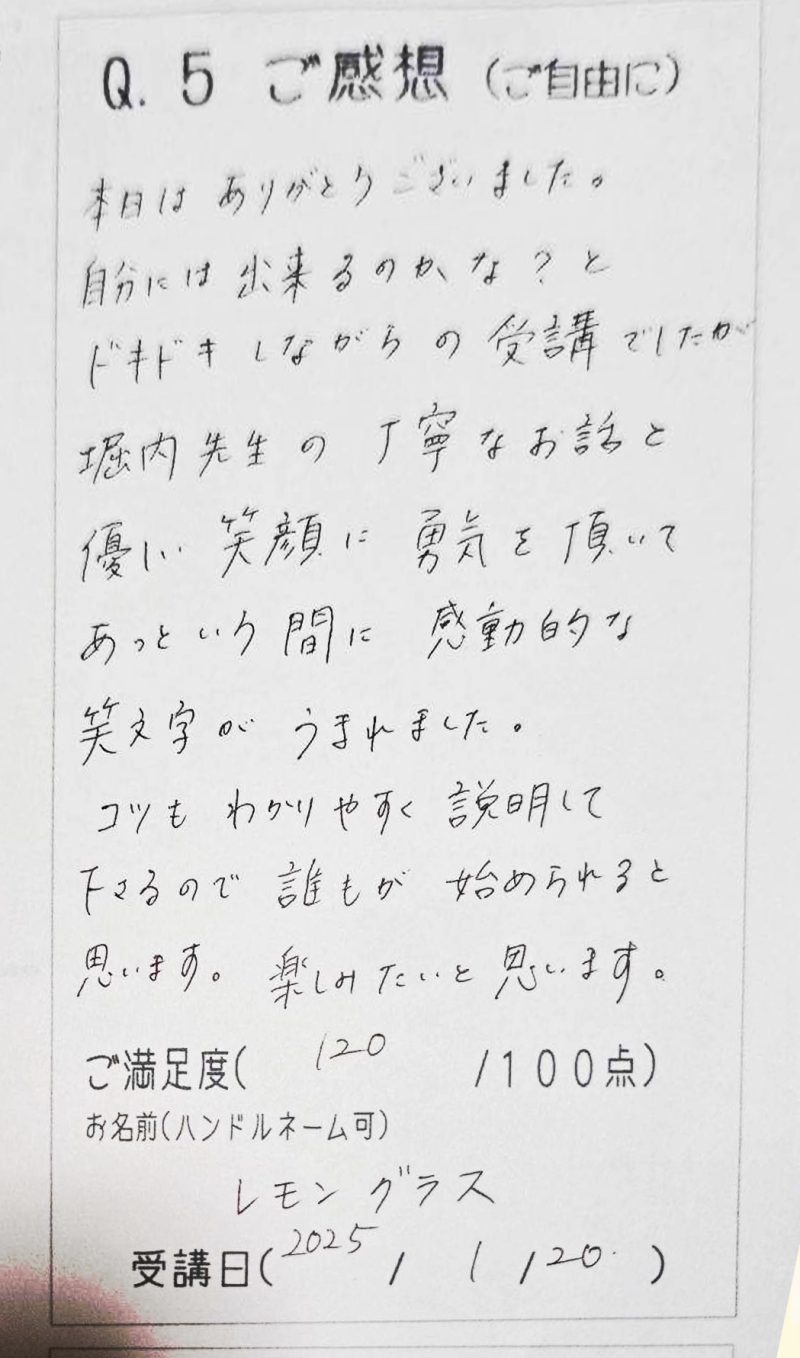 Q.5 ご感想（ご自由に）
本日はありがとうございました。
自分には出来るのかな？と
ドキドキしながらの受講でしたが
堀内先生の丁寧なお話と
優しい笑顔に勇気を頂いて
あっという間に感動的な
笑文字がうまれました。
コツもわかりやすく説明して
下さるので誰もが始められると
思います。楽しみたいと思います。
ご満足度( 120 /100点)
お名前(ハンドルネーム可)
レモングラス
受講日( 2025 / 1 / 20 )